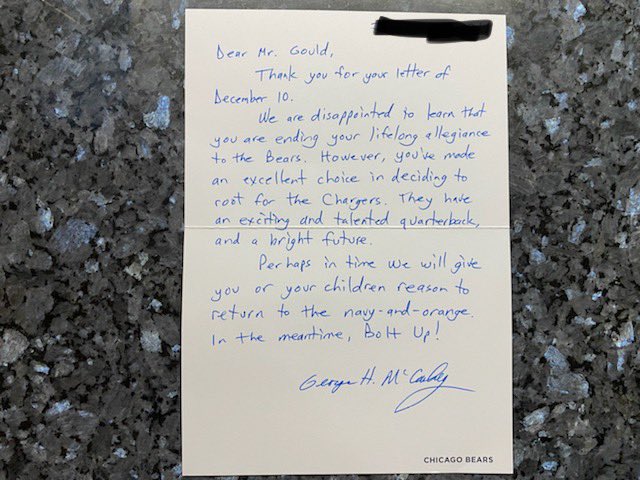 Dear Mr. Gould,
Thank you for your letter of
December 10.
We are disappointed to learn that
you are ending your lifelong allegiance
to the Bears. However, you've made
an excellent choice in deciding to
root for the Chargers. They have
an exciting and talented quarterback,
and a bright future.
Perhaps in time we will give
you or your children reason to
return to the navy-and-orange.
In the meantime, Bolt Up!
George H. McCaskey
CHICAGO BEARS